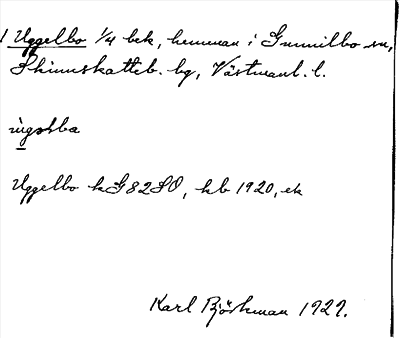 1 Uggelbo 1/4 bek, hemman i Gunnilbo sn,
Skinnskatteb. hg, Västmanl. l.
ùgəlba
Uggelbo kG82SO, kb 1920, ek
Karl Björkman 1927.